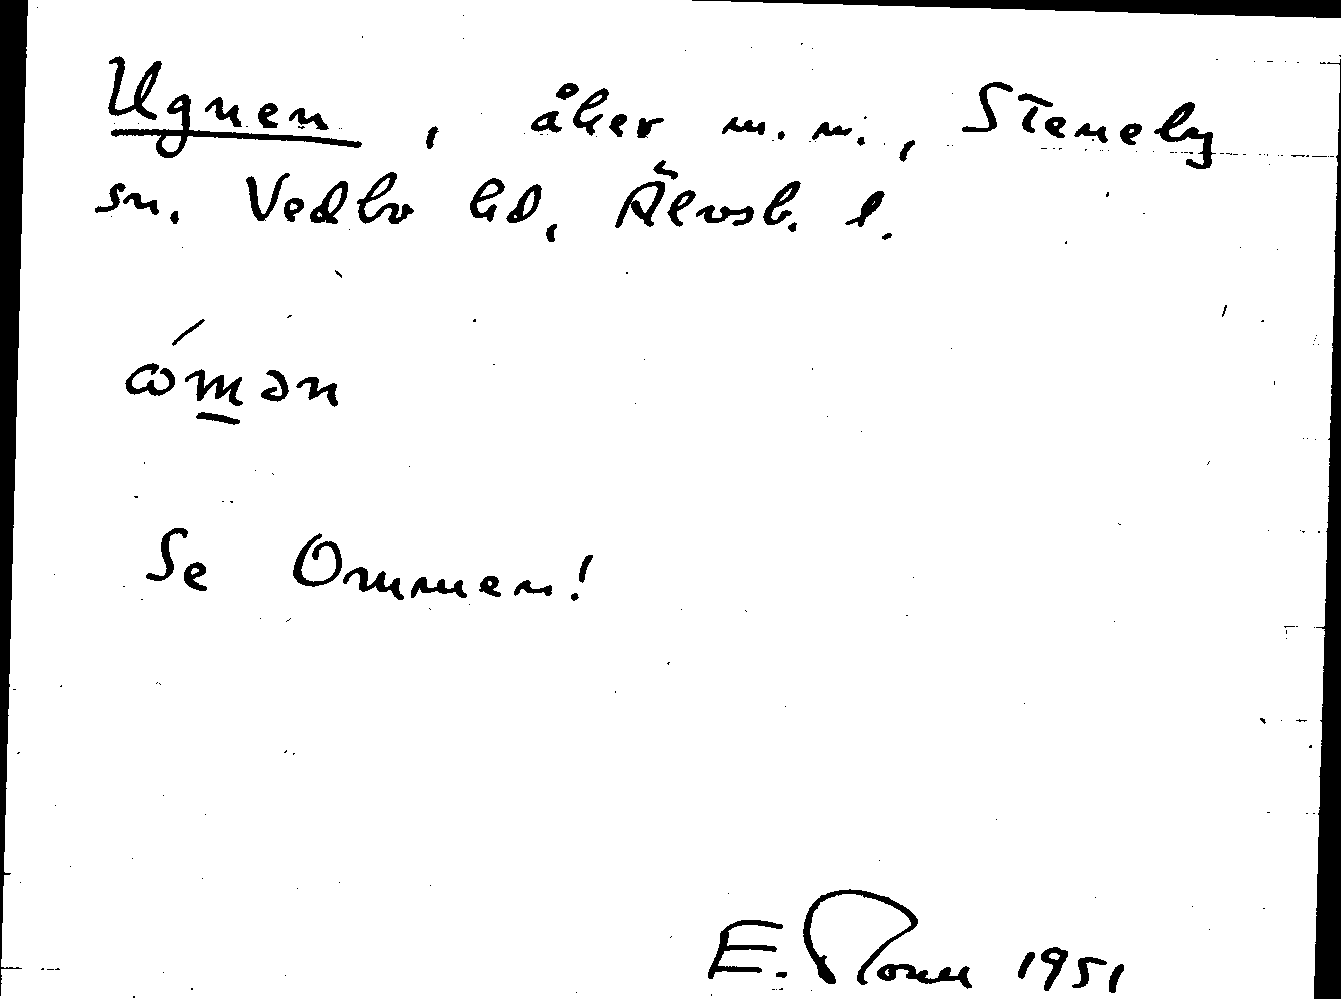 Ugnen, åker m.m., Steneby
sn. Vedbo hd, Älvsb. l.
ώmən
Se Ommen!
E. 1951